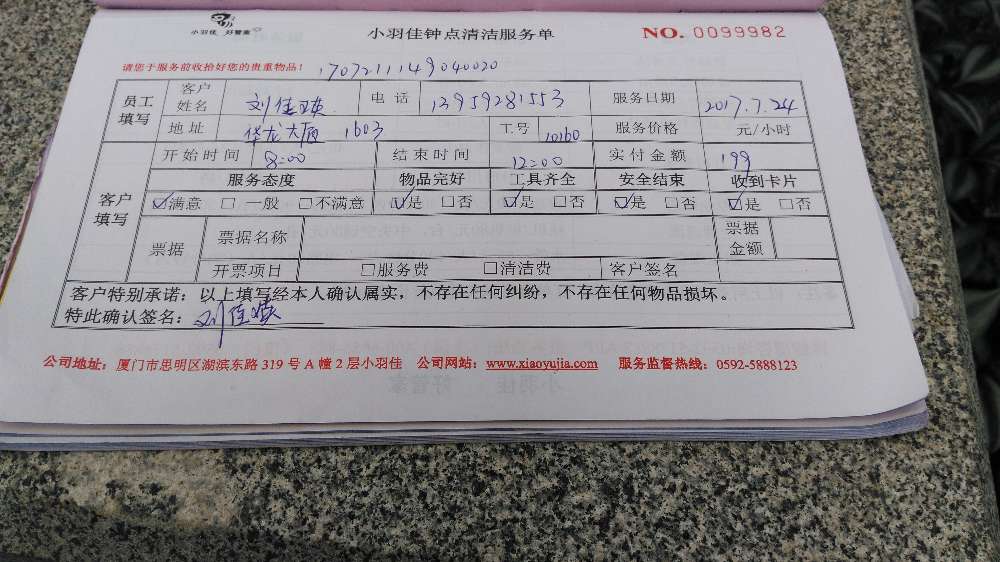 小羽佳 好管家
小羽佳钟点清洁服务单
NO. 0099982
请您于服务前收拾好您的贵重物品!
1707211149040020
员工填写 客户姓名 刘佳瑛 电话 13959281553 服务日期 2017.7.24
地址 华龙大厦 1603 工号 10160 服务价格 元/小时
客户填写 开始时间 8:00 结束时间 12:00 实付金额 199
服务态度 物品完好 工具齐全 安全结束 收到卡片
☑满意 □一般 □不满意 ☑是 □否 ☑是 □否 ☑是 □否 ☑是 □否
票据 票据名称 票据金额
开票项目 □服务费 □清洁费 客户签名
客户特别承诺:以上填写经本人确认属实,不存在任何纠纷,不存在任何物品损坏。
特此确认签名:刘佳瑛
公司地址:厦门市思明区湖滨东路 319 号 A 幢 2 层小羽佳 公司网站:www.xiaoyujia.com 服务监督热线:0592-5888123